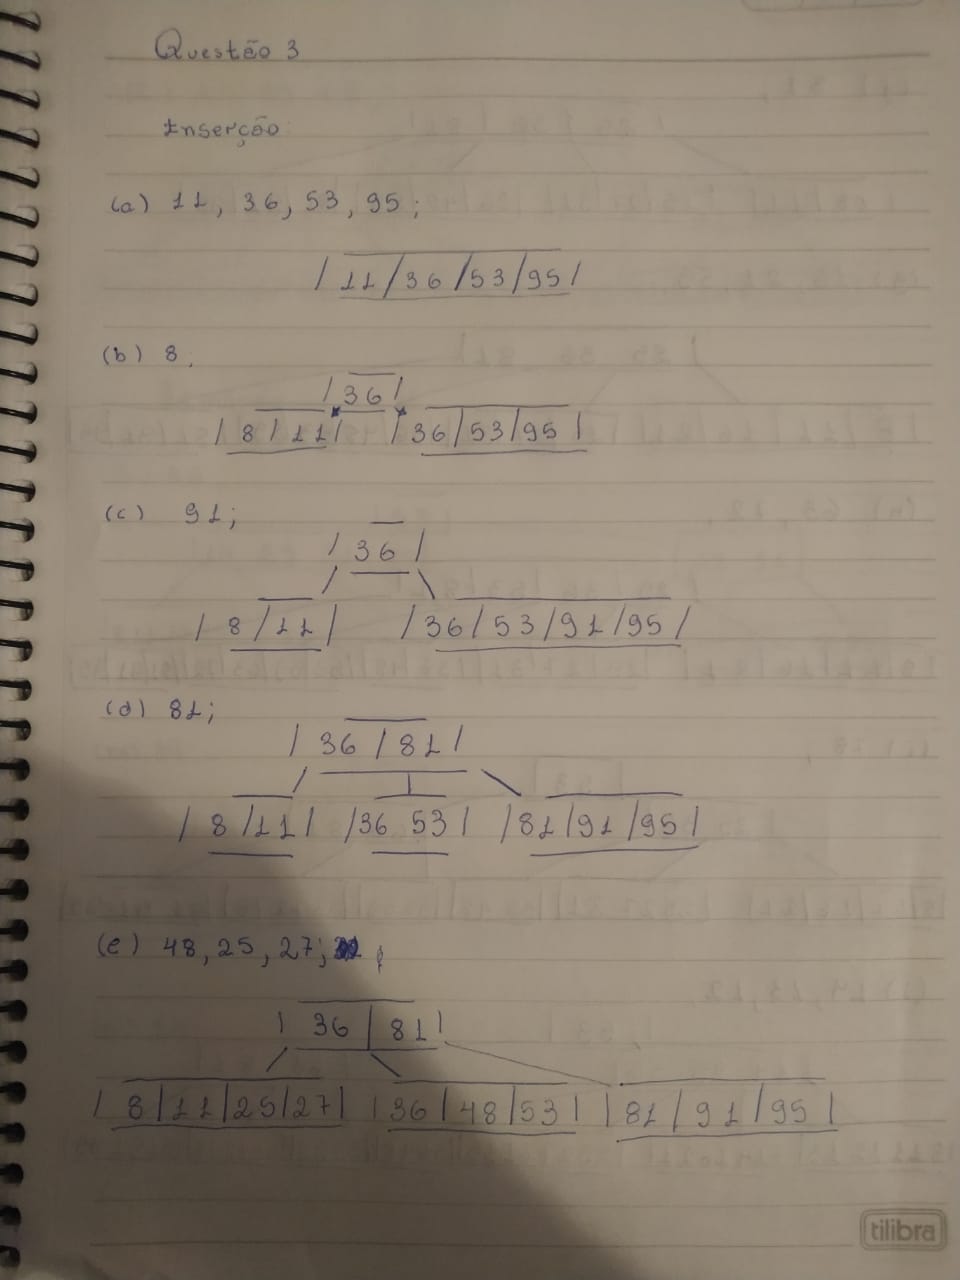 Questão 3
Inserção
(a) 11, 36, 53, 95;
| 11 / 36 / 53 / 95 |
(b) 8;
| 36 |
| 8 | 11 | | 36 | 53 | 95 |
(c) 91;
| 36 |
| 8 / 11 | | 36 / 53 / 91 / 95 |
(d) 81;
| 36 | 81 |
| 8 / 11 | | 36 53 | | 81 | 91 | 95 |
(e) 48, 25, 27;
| 36 | 81 |
| 8 | 11 | 25 | 27 | | 36 | 48 | 53 | | 81 / 91 / 95 |
tilibra